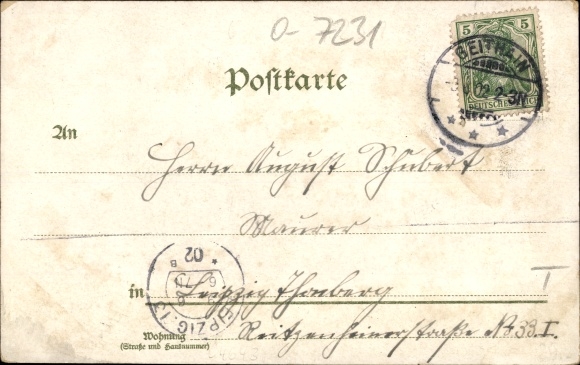 O-7231
5 5
DEUTSCHES REICH
GEITHAIN
02.2-3N
Postkarte
An
Herrn August Schubert
Maurer
in Leipzig Thonberg
Reitzenheinerstraße № 33. I.
Wohnung
(Straße und Hausnummer)
LEIPZIG. 13
02
B